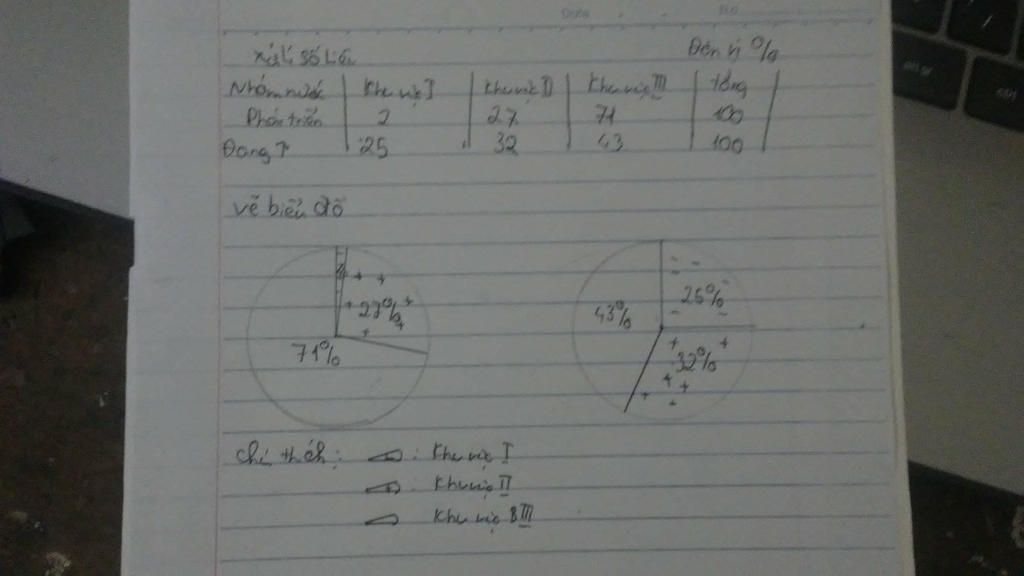 Date No
Xử lí số liệu Đơn vị %
Nhóm nước Khu vực I Khu vực II Khu vực III tổng
Phát triển 2 27 71 100
Đang P 25 32 43 100
vẽ biểu đồ
2 27% 71%
25% 43% 32%
chú thích: : Khu vực I
Khu vực II
Khu vực III
ctrl